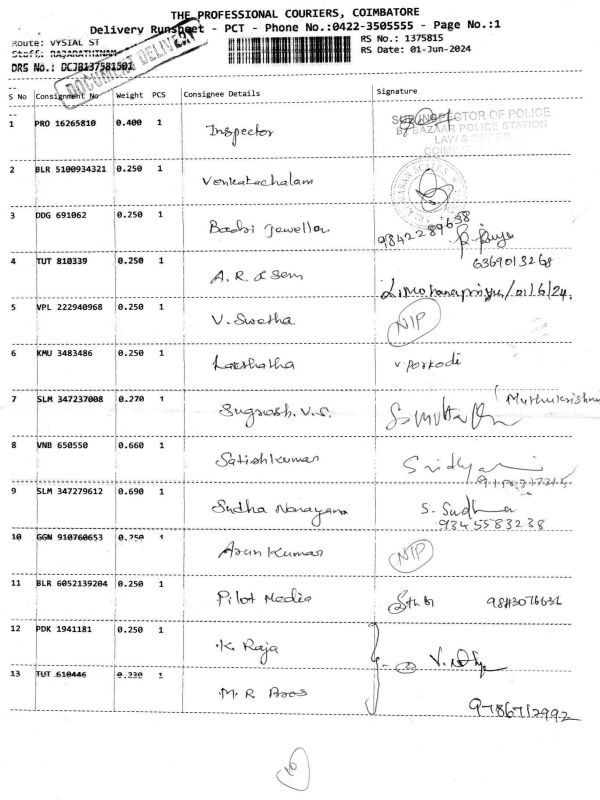 THE PROFESSIONAL COURIERS, COIMBATORE
Delivery Runsheet - PCT - Phone No.:0422-3505555 - Page No.:1
Route: VYSIAL ST
RS No.: 1375815
Staff: RAJARATHINAM
RS Date: 01-Jun-2024
DRS No.: DCJB137581501
DOCUMENT DELIVERY
S No Consignment No Weight PCS Consignee Details Signature
1 PRO 16265810 0.400 1 Inspector
SUB INSPECTOR OF POLICE
BAZAAR POLICE STATION
LAW &
2 BLR 5100934321 0.250 1 Venkatachalam
3 DDG 691062 0.250 1 Badri Jeweller 9842289638
6369013268
4 TUT 810339 0.250 1 A.R. & Sem L.Mohanapriya/01/6/24.
5 VPL 222940968 0.250 1 V. Swetha NIP
6 KMU 3483486 0.250 1 Lakshatha V. Porkodi
7 SLM 347237008 0.270 1 Sugnash. V.S. (Muthukrishn
8 VNB 650550 0.660 1 Satishkumar
9 SLM 347279612 0.690 1 Sudha Narayana S. Sudha
9345583238
10 GGN 910760653 0.250 1 Arun Kumar NIP
11 BLR 6052139204 0.250 1 Pilot Media 9843076631
12 PDK 1941181 0.250 1 K. Raja
13 TUT 610446 0.230 1 M. R. Bros
9786712992
10